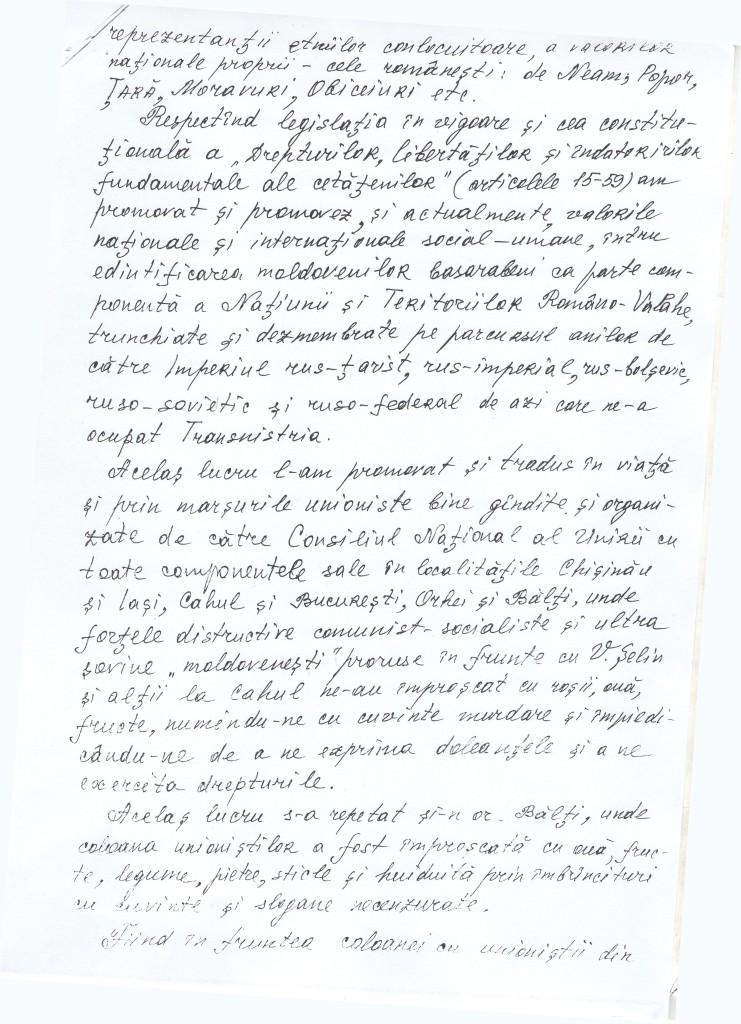 reprezentanții etniilor conlocuitoare, a valorilor
naționale proprii - cele românești: de Neam, Popor,
ȚARĂ, Moravuri, Obiceiuri etc.
Respectînd legislația în vigoare și cea constitu-
țională a „Drepturilor, libertăților și îndatoririlor
fundamentale ale cetățenilor" (articolele 15-59) am
promovat și promovez, și actualmente, valorile
naționale și internaționale social-umane, întru
edintificarea moldovenilor basarabeni ca parte com-
ponentă a Națiunii și Teritoriilor Româno-Valahe,
trunchiate și dezmembrate pe parcursul anilor de
către Imperiul rus-țarist, rus-imperial, rus-bolșevic,
ruso-sovietic și ruso-federal de azi care ne-a
ocupat Transnistria.
Acelaș lucru l-am promovat și tradus în viață
și prin marșurile unioniste bine gîndite și organi-
zate de către Consiliul Național al Unirii cu
toate componentele sale în localitățile Chișinău
și Iași, Cahul și București, Orhei și Bălți, unde
forțele distructive comunist-socialiste și ultra
șovine „moldovenești" proruse în frunte cu V. Șelin
și alții la Cahul ne-au împroșcat cu roșii, ouă,
fructe, numindu-ne cu cuvinte murdare și împiedi-
cându-ne de a ne exprima doleanțele și a ne
exercita drepturile.
Acelaș lucru s-a repetat și-n or. Bălți, unde
coloana unioniștilor a fost împroșcată cu ouă, fruc-
te, legume, pietre, sticle și huiduită prin îmbrîncituri
cu cuvinte și slogane necenzurate.
Fiind în fruntea coloanei cu unioniștii din